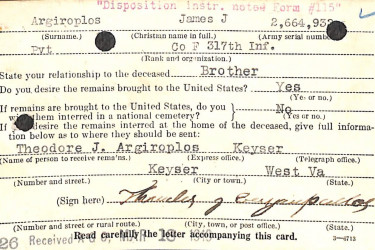 "Disposition instr. noted Form #115"
Argiroplos James J 2,664,932
(Surname.) (Christian name in full.) (Army serial number.)
Pvt Co F 317th Inf.
(Rank and organization.)
State your relationship to the deceased Brother
Do you desire the remains brought to the United States? Yes
(Yes or no.)
If remains are brought to the United States, do you
them interred in a national cemetery? } No
(Yes or no.)
If desire the remains interred at the home of the deceased, give full informa-
tion below as to where they should be sent:
Theodore J. Argiroplos Keyser
(Name of person to receive remains.) (Express office.) (Telegraph office.)
Keyser West Va
(Number and street.) (City or town.) (State.)
(Sign here)
(Number and street or rural route.) (City, town, or post office.) (State.)
26 Received
Read carefully the letter accompanying this card. 3—6713